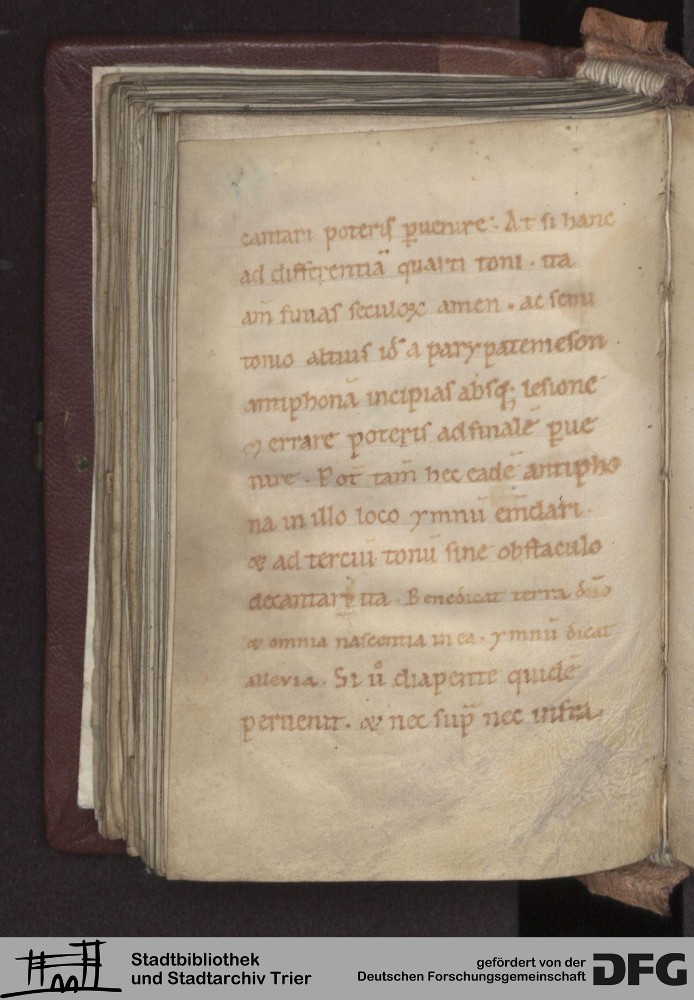 cantari poteris ꝑuenire. At si hanc
ad differentiā quarti toni. ita
am̄ finias seculoꝝ amen. ac semi
tonio altius id̄ a parypatemeson
antiphonā incipias absq; lesione
errare poteris ad finalē ꝑue
nire. Pot̄ tam̄ hec eadē antipho
na in illo loco ymnū em̄dari.
& ad terciū tonū sine obstaculo
decantari ita. Benedicat terra dn̄o
& omnia nascentia in ea. ymnū dicat
alleuia. Si ů diapente quidē
peruenit. & nec sup̄ nec infra.
Stadtbibliothek
und Stadtarchiv Trier
gefördert von der
Deutschen Forschungsgemeinschaft
DFG